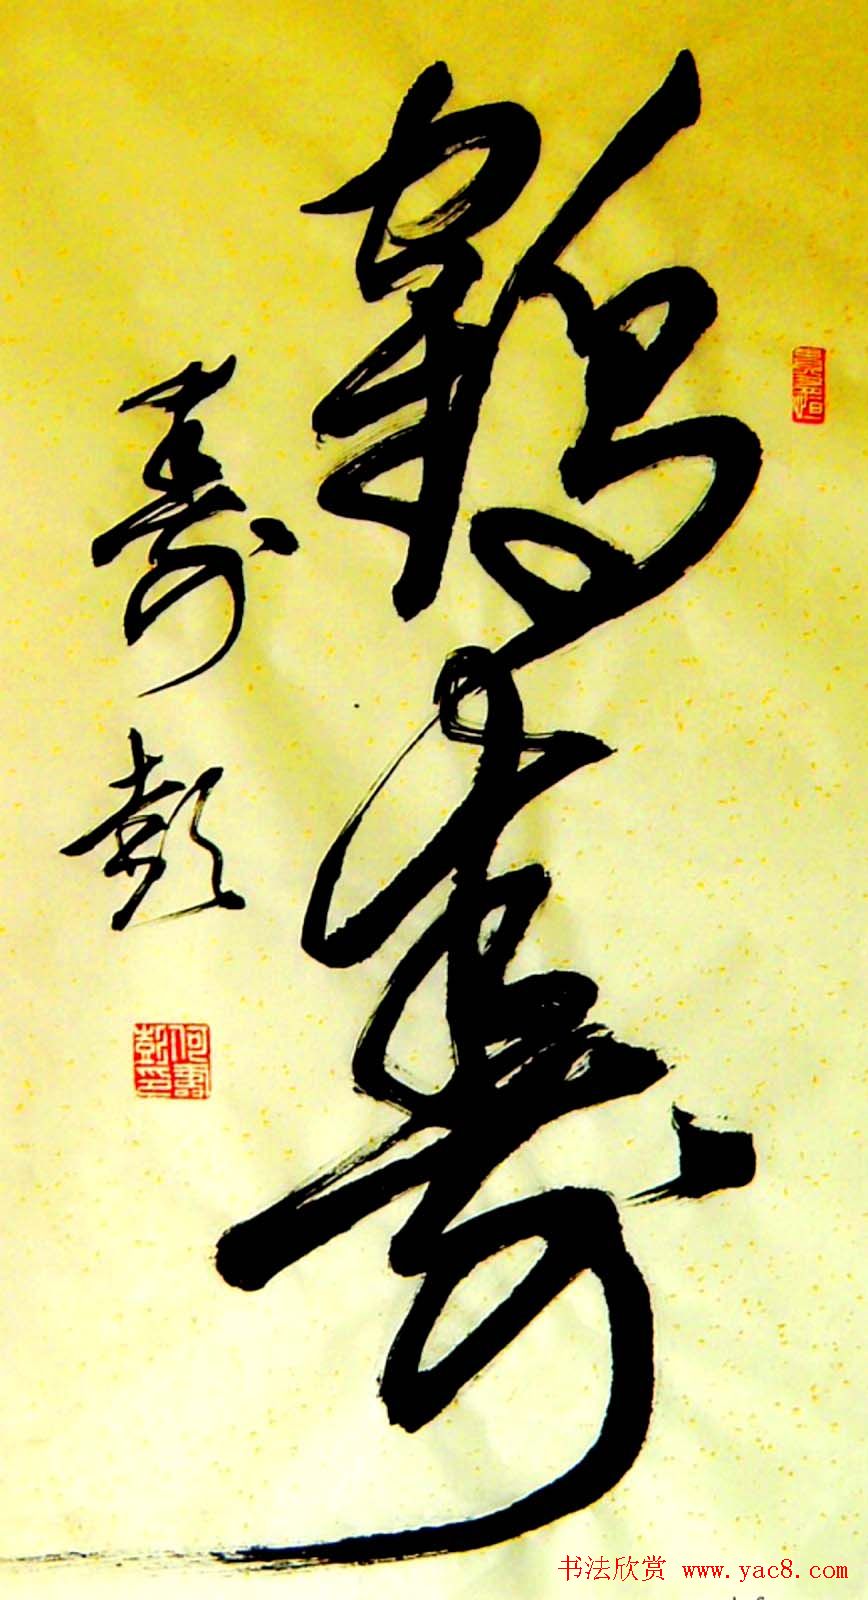 鹤寿
寿彭
何寿彭印
书法欣赏 www.yac8.com